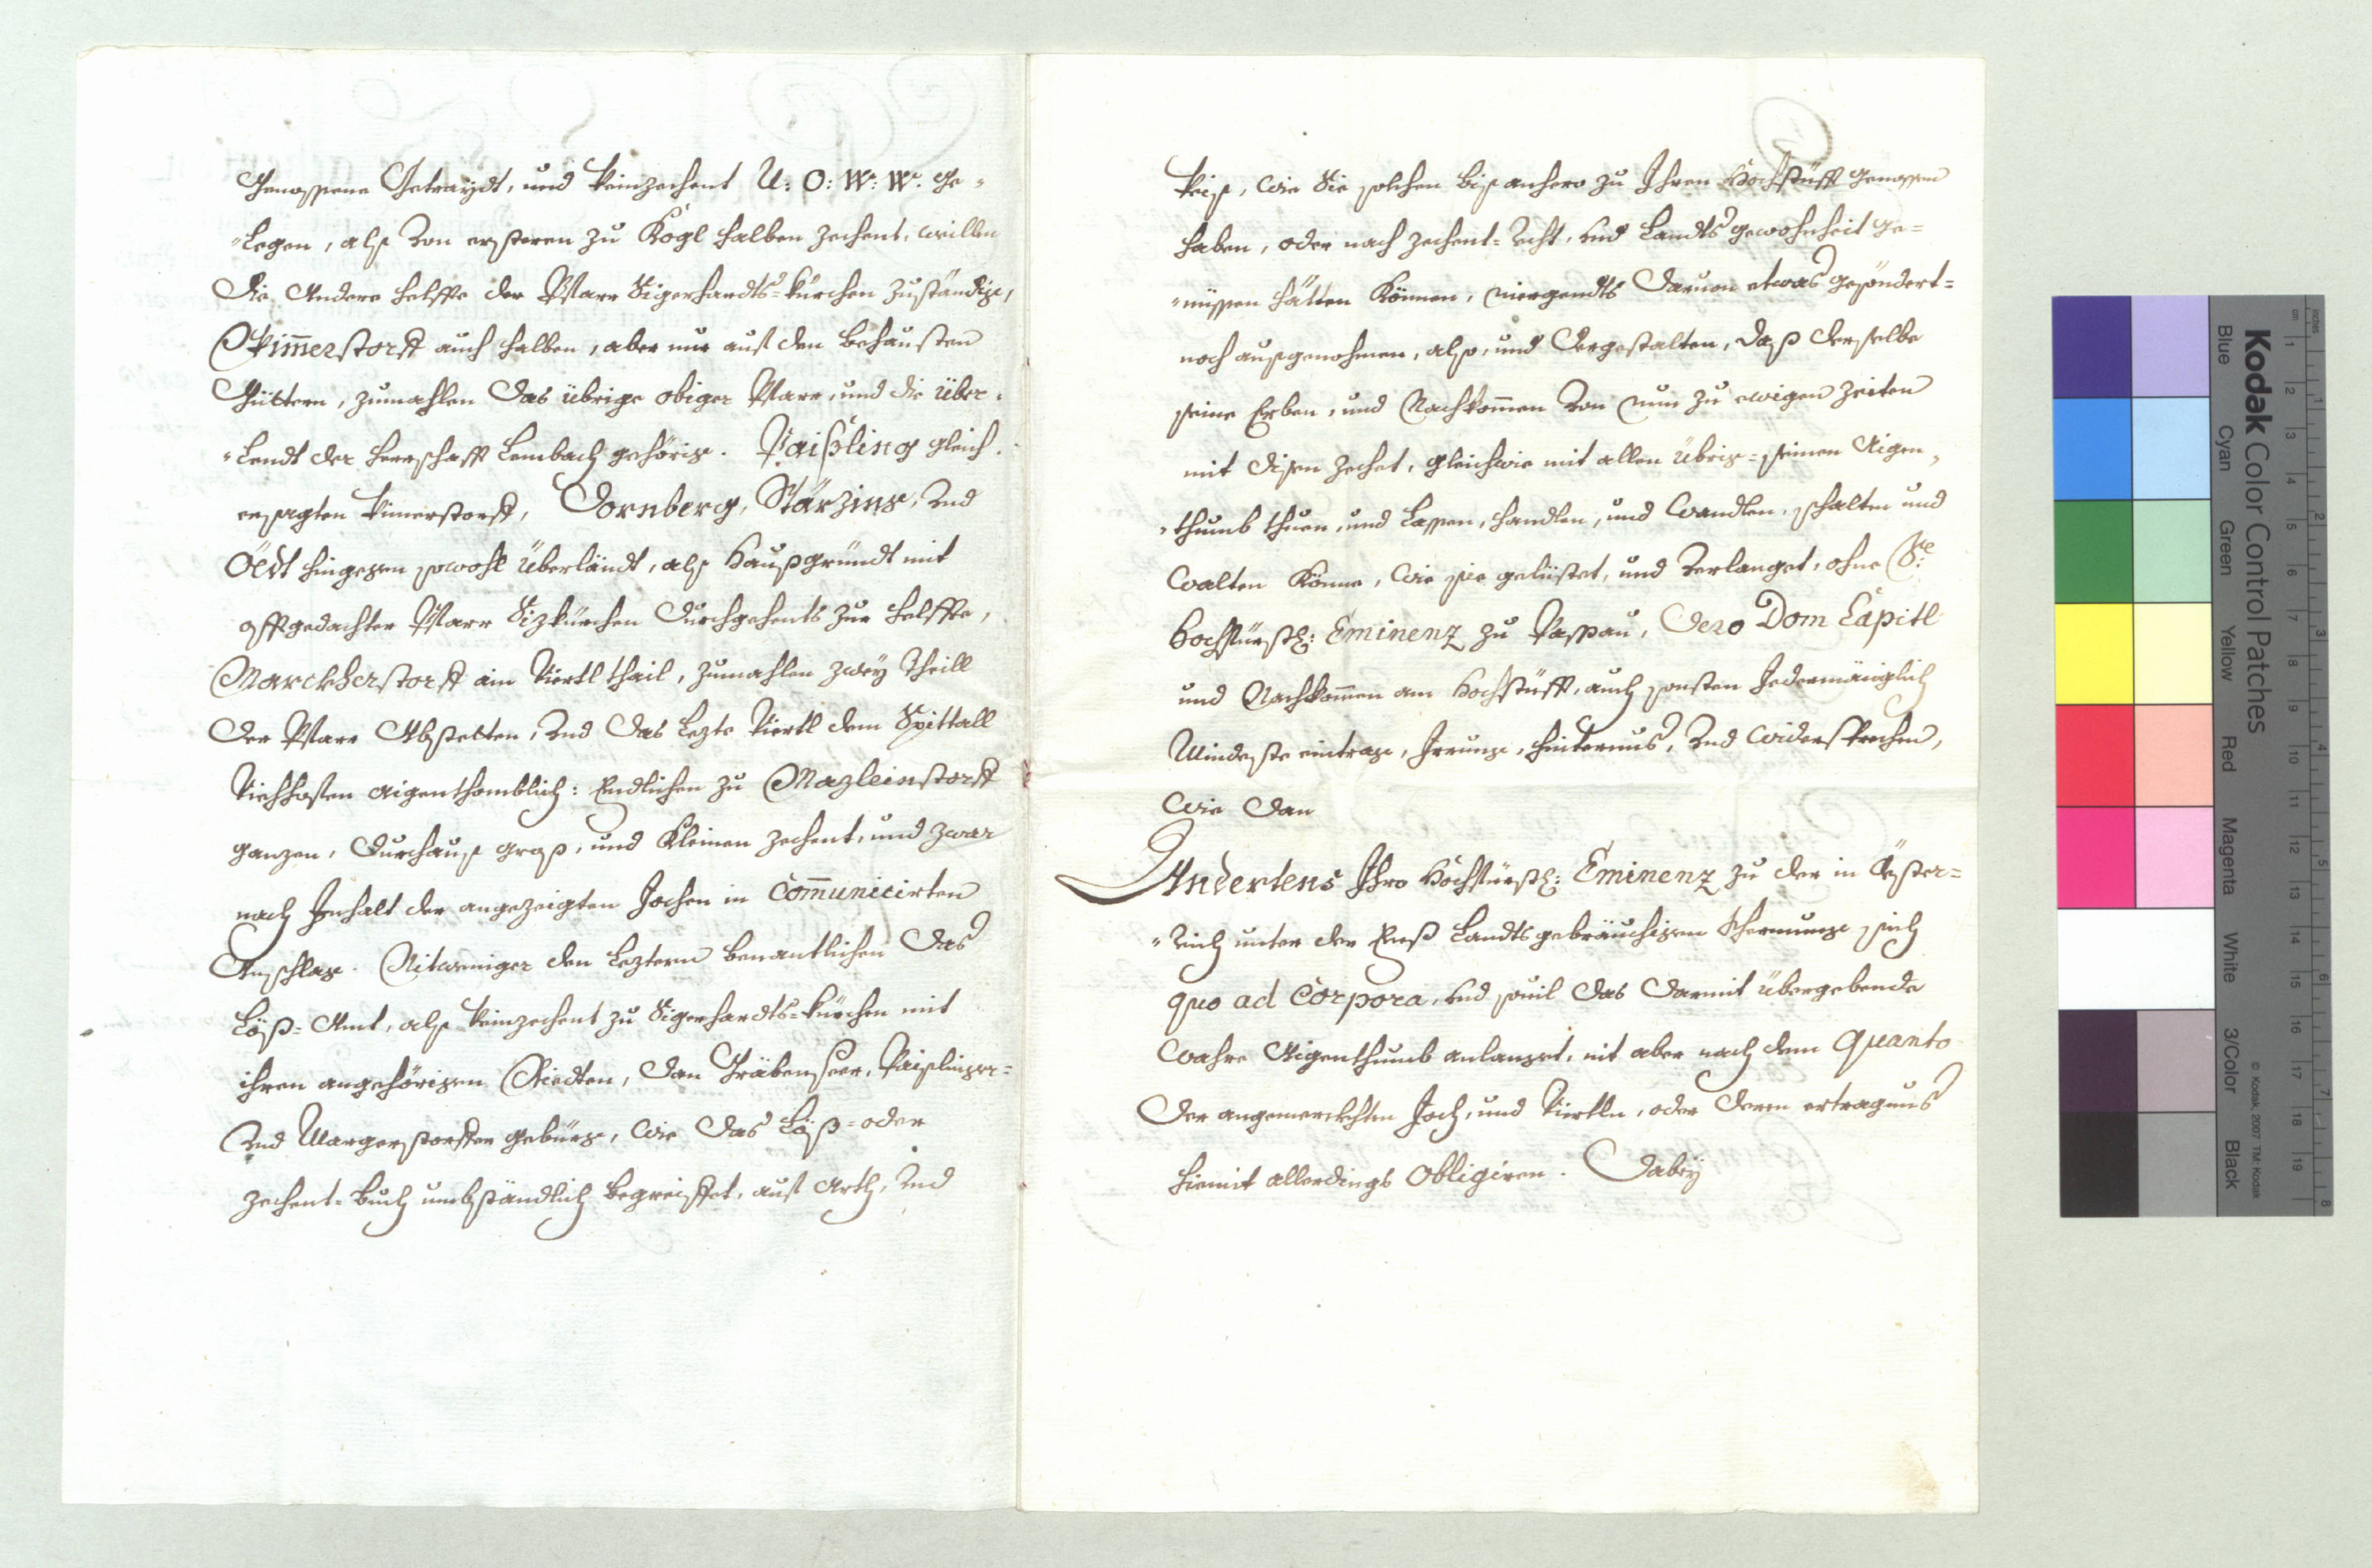 Genossene Getraydt, und Weinzechent U: O: W: W: ge-
"legen, alß von ersteren zu Kogl halben Zechent, weillen
die Andere helffte der Pfarr Sigerhardts-kürchen zuständig,
Wimmerstorff auch halben, aber nur auß den behausten
Güettern, zumahlen das übrige obiger Pfarr, und die über-
"Lendt der herrschafft Lembach gehörig. Paißling gleich-
ersagten Wimerstorff, Dornberg, Stärzing, Vnd
Öedt hingegen sowohl Überländt, alß Haußgründt mit
offtgedachter Pfarr Sizkürchen durchgehents zur helffte,
Marckherstorff ain Viertl thail, zumahlen zwey theill
der Pfarr Abstetten, Vnd das lezte Viertl dem Spittall
Viehhofen aigenthomblich: Endlichen zu Mazleinstorff
ganzen, durchauß groß, und Kleinen Zechent, und zwar
nach Innhalt der angezeigten Jochen in Communicirten
Anschlag. Nitweniger den leztern benantlichen das
Löß-Amt, alß Weinzechent zu Sigerhardts-kürchen mit
ihren angehörigen Riedten, dan Gräbenseer, Paißlinger-
Vnd Margerstorffer gebürg, wie das Löß-oder
Zechent-Buch umbständlich begreiffet, auf Arth, Vnd
Weiß, wie Sie solchen bißanhero zu Ihren Hochstüfft genossen
haben, oder nach Zechent-Recht, und Landtsgewohnheit ge-
"nüssen hätten Können, niergendts daruon etwas gesöndert-
noch außgenohmen, also, und dergestalten, daß derselbe
seine Erben, und Nachkommen von nun zu ewigen Zeiten
mit disen Zechet, gleichwie mit allen übrig-seinen Aigen-
"thumb thuen, und lassen, handlen, und wandlen, schalten und
walten Könne, wie sie gelüstet, und verlanget, ohne Sr.
Hochfürstl: Eminenz zu Passau, dero Dom Capitl
und Nachkommen am Hochstüfft, auch sonsten Jedermäniglich
Mindeste eintrag, Irrung, hinternus, Vnd widersprechen,
wie dan
Andertens Ihro Hochfürstl: Eminenz zu der in Öster-
"reich unter der Enß Landtsgebräuchigen Schermung sich
quo ad Corpora, und souil das darmit übergebende
wahre Aigenthumb anlanget, nit aber nach dem Quanto
der angemerckhten Joch, und Viertln, oder deren ertragnus
hiemit allerdings Obligiren. Dabey